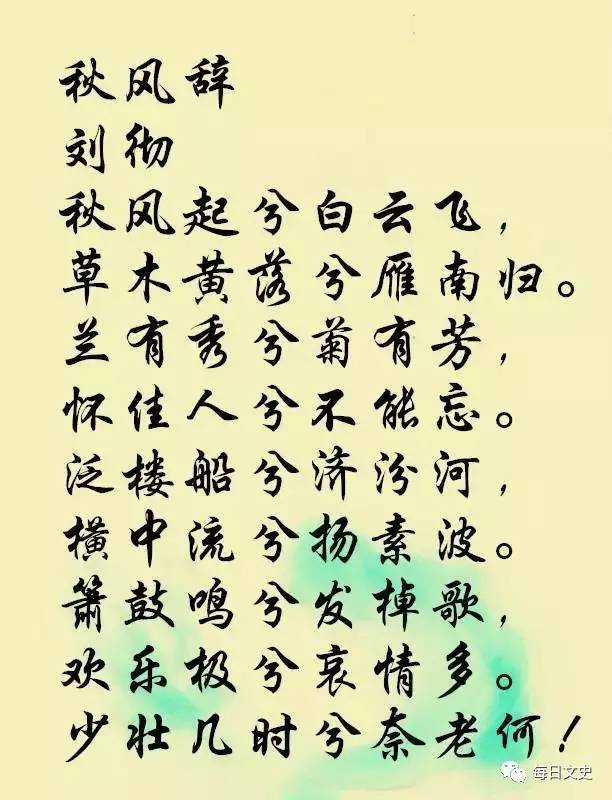 秋风辞
刘彻
秋风起兮白云飞，
草木黄落兮雁南归。
兰有秀兮菊有芳，
怀佳人兮不能忘。
泛楼船兮济汾河，
横中流兮扬素波。
箫鼓鸣兮发棹歌，
欢乐极兮哀情多。
少壮几时兮奈老何！
每日文史